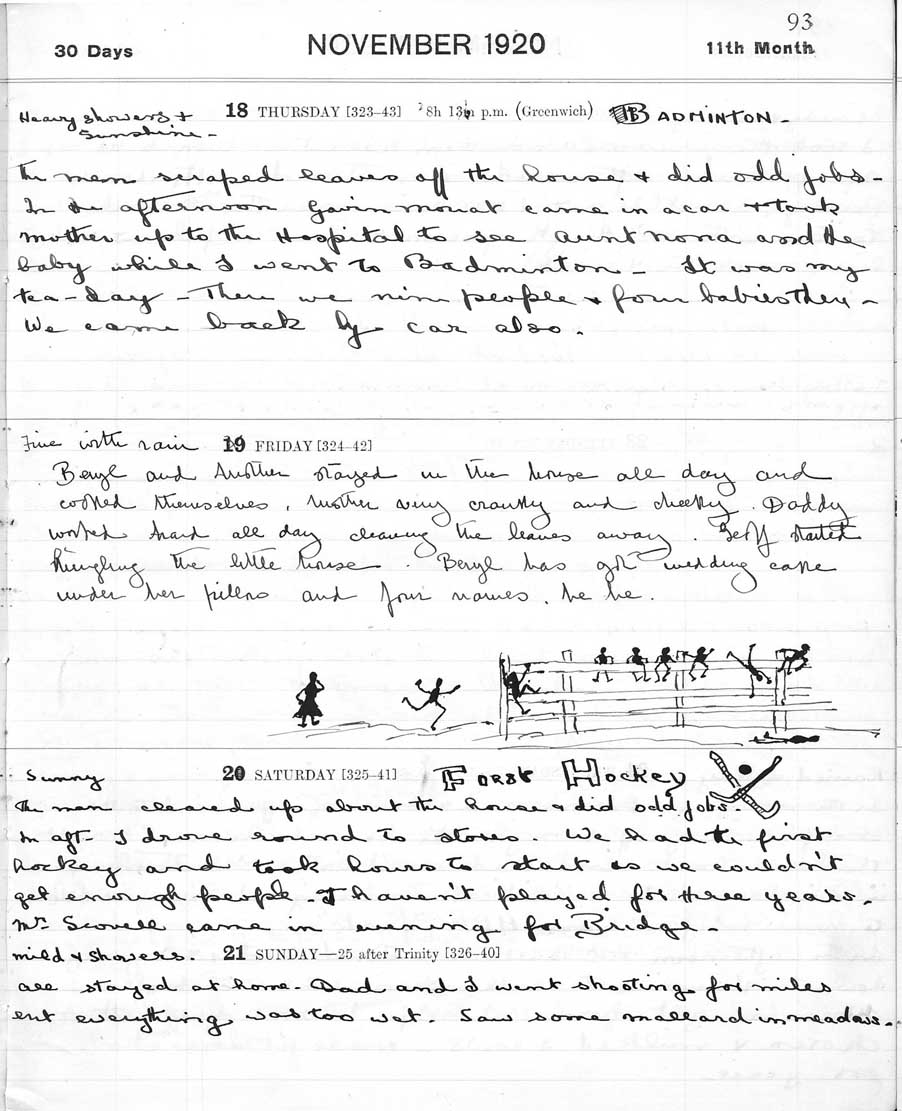 93
30 Days NOVEMBER 1920 11th Month
Heavy showers + 18 THURSDAY [323-43] 8h 13m p.m. (Greenwich) BADMINTON -
Sunshine -
The men scraped leaves off the house + did odd jobs -
In the afternoon Gavin Mouat came in a car + took
mother up to the Hospital to see Aunt Nona and the
baby while I went to Badminton - It was my
tea-day - There we nine people + four babies there -
We came back by car also.
Fine with rain 19 FRIDAY [324-42]
Beryl and Mother stayed in the house all day and
cooked themselves, Mother very cranky and cheeky. Daddy
worked hard all day cleaning the leaves away. Geoff started
shingling the little house. Beryl has got wedding cake
under her pillow and four names, he he.
Sunny 20 SATURDAY [325-41] First Hockey
The men cleared up about the house + did odd jobs.
In aft. I drove round to stores. We had the first
hockey and took hours to start as we couldn't
get enough people. I haven't played for three years.
Mr. Scovell came in evening for Bridge -
mild + showers. 21 SUNDAY—25 after Trinity [326-40]
All stayed at home. Dad and I went shooting for miles
but everything was too wet. Saw some mallard in meadows.